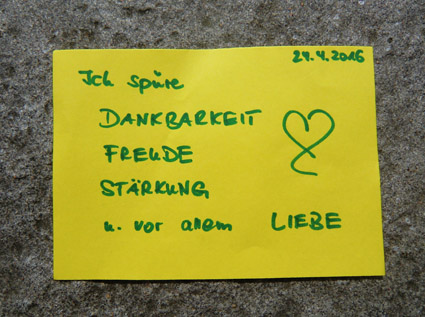 24.4.2016
Ich spüre
DANKBARKEIT
FREUDE
STÄRKUNG
u. vor allem LIEBE